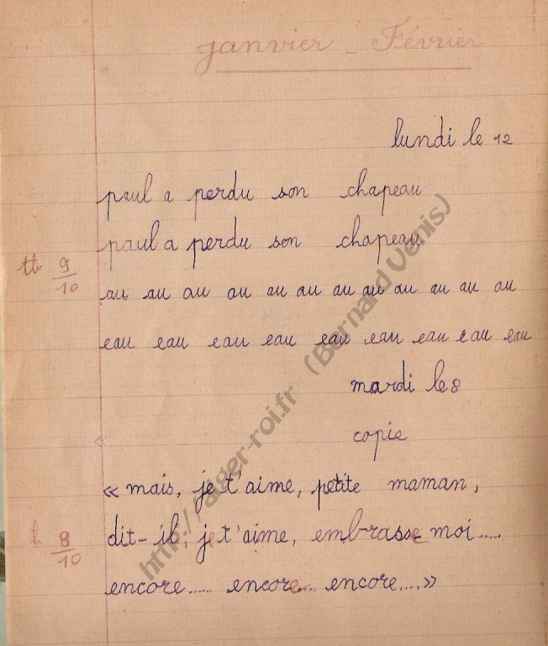 janvier - Février
lundi le 12
paul a perdu son chapeau
paul a perdu son chapeau
tt 9/10
au au au au au au au au au au au au
eau eau eau eau eau eau eau eau eau
mardi le 8
copie
« mais, je t'aime, petite maman,
dit-il; je t'aime, embrasse moi.....
t 8/10
encore..... encore.... encore.... »
(Bernard Venis)